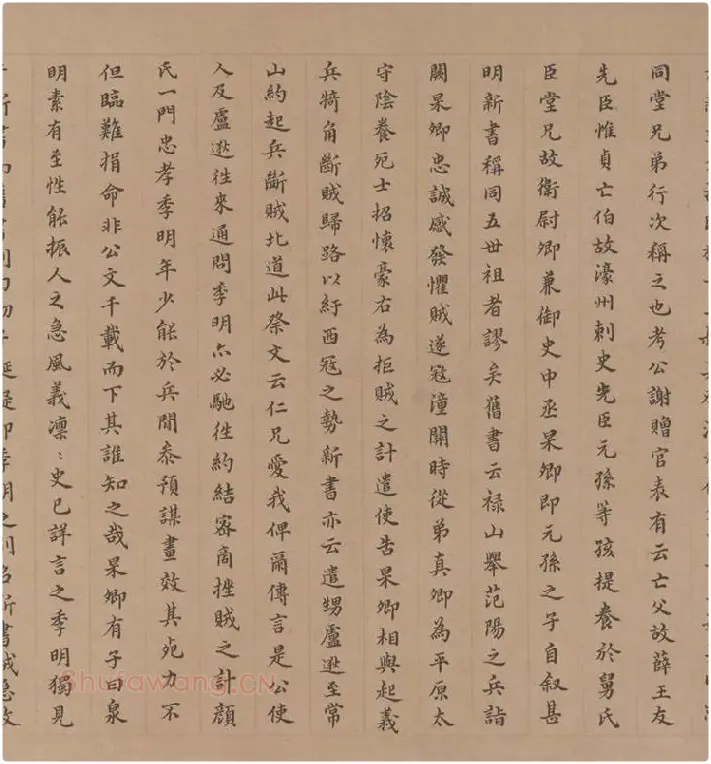 同堂兄弟行次稱之也考公謝贈官表有云亡父故薛王友
先臣惟貞亡伯故濠州刺史先臣元孫等孩提養於舅氏
臣堂兄故衛尉卿兼御史中丞杲卿即元孫之子自叙甚
明新書稱同五世祖者謬矣舊書云禄山舉范陽之兵詣
闕杲卿忠誠感發懼賊遂冦潼關時從弟真卿為平原太
守陰養死士招懷豪右為拒賊之計遣使告杲卿相與起義
兵犄角斷賊歸路以紓西冦之勢新書亦云遣甥盧逖至常
山約起兵斷賊北道此祭文云仁兄愛我俾爾傳言是公使
人及盧逖往來通問季明亦必馳往約結密商挫賊之計顔
氏一門忠孝季明年少能於兵間叅預謀畫效其死力不
但臨難捐命非公文千載而下其誰知之哉杲卿有子曰泉
明素有至性能振人之急風義凛〻史已詳言之季明獨見
Shufawang.CN